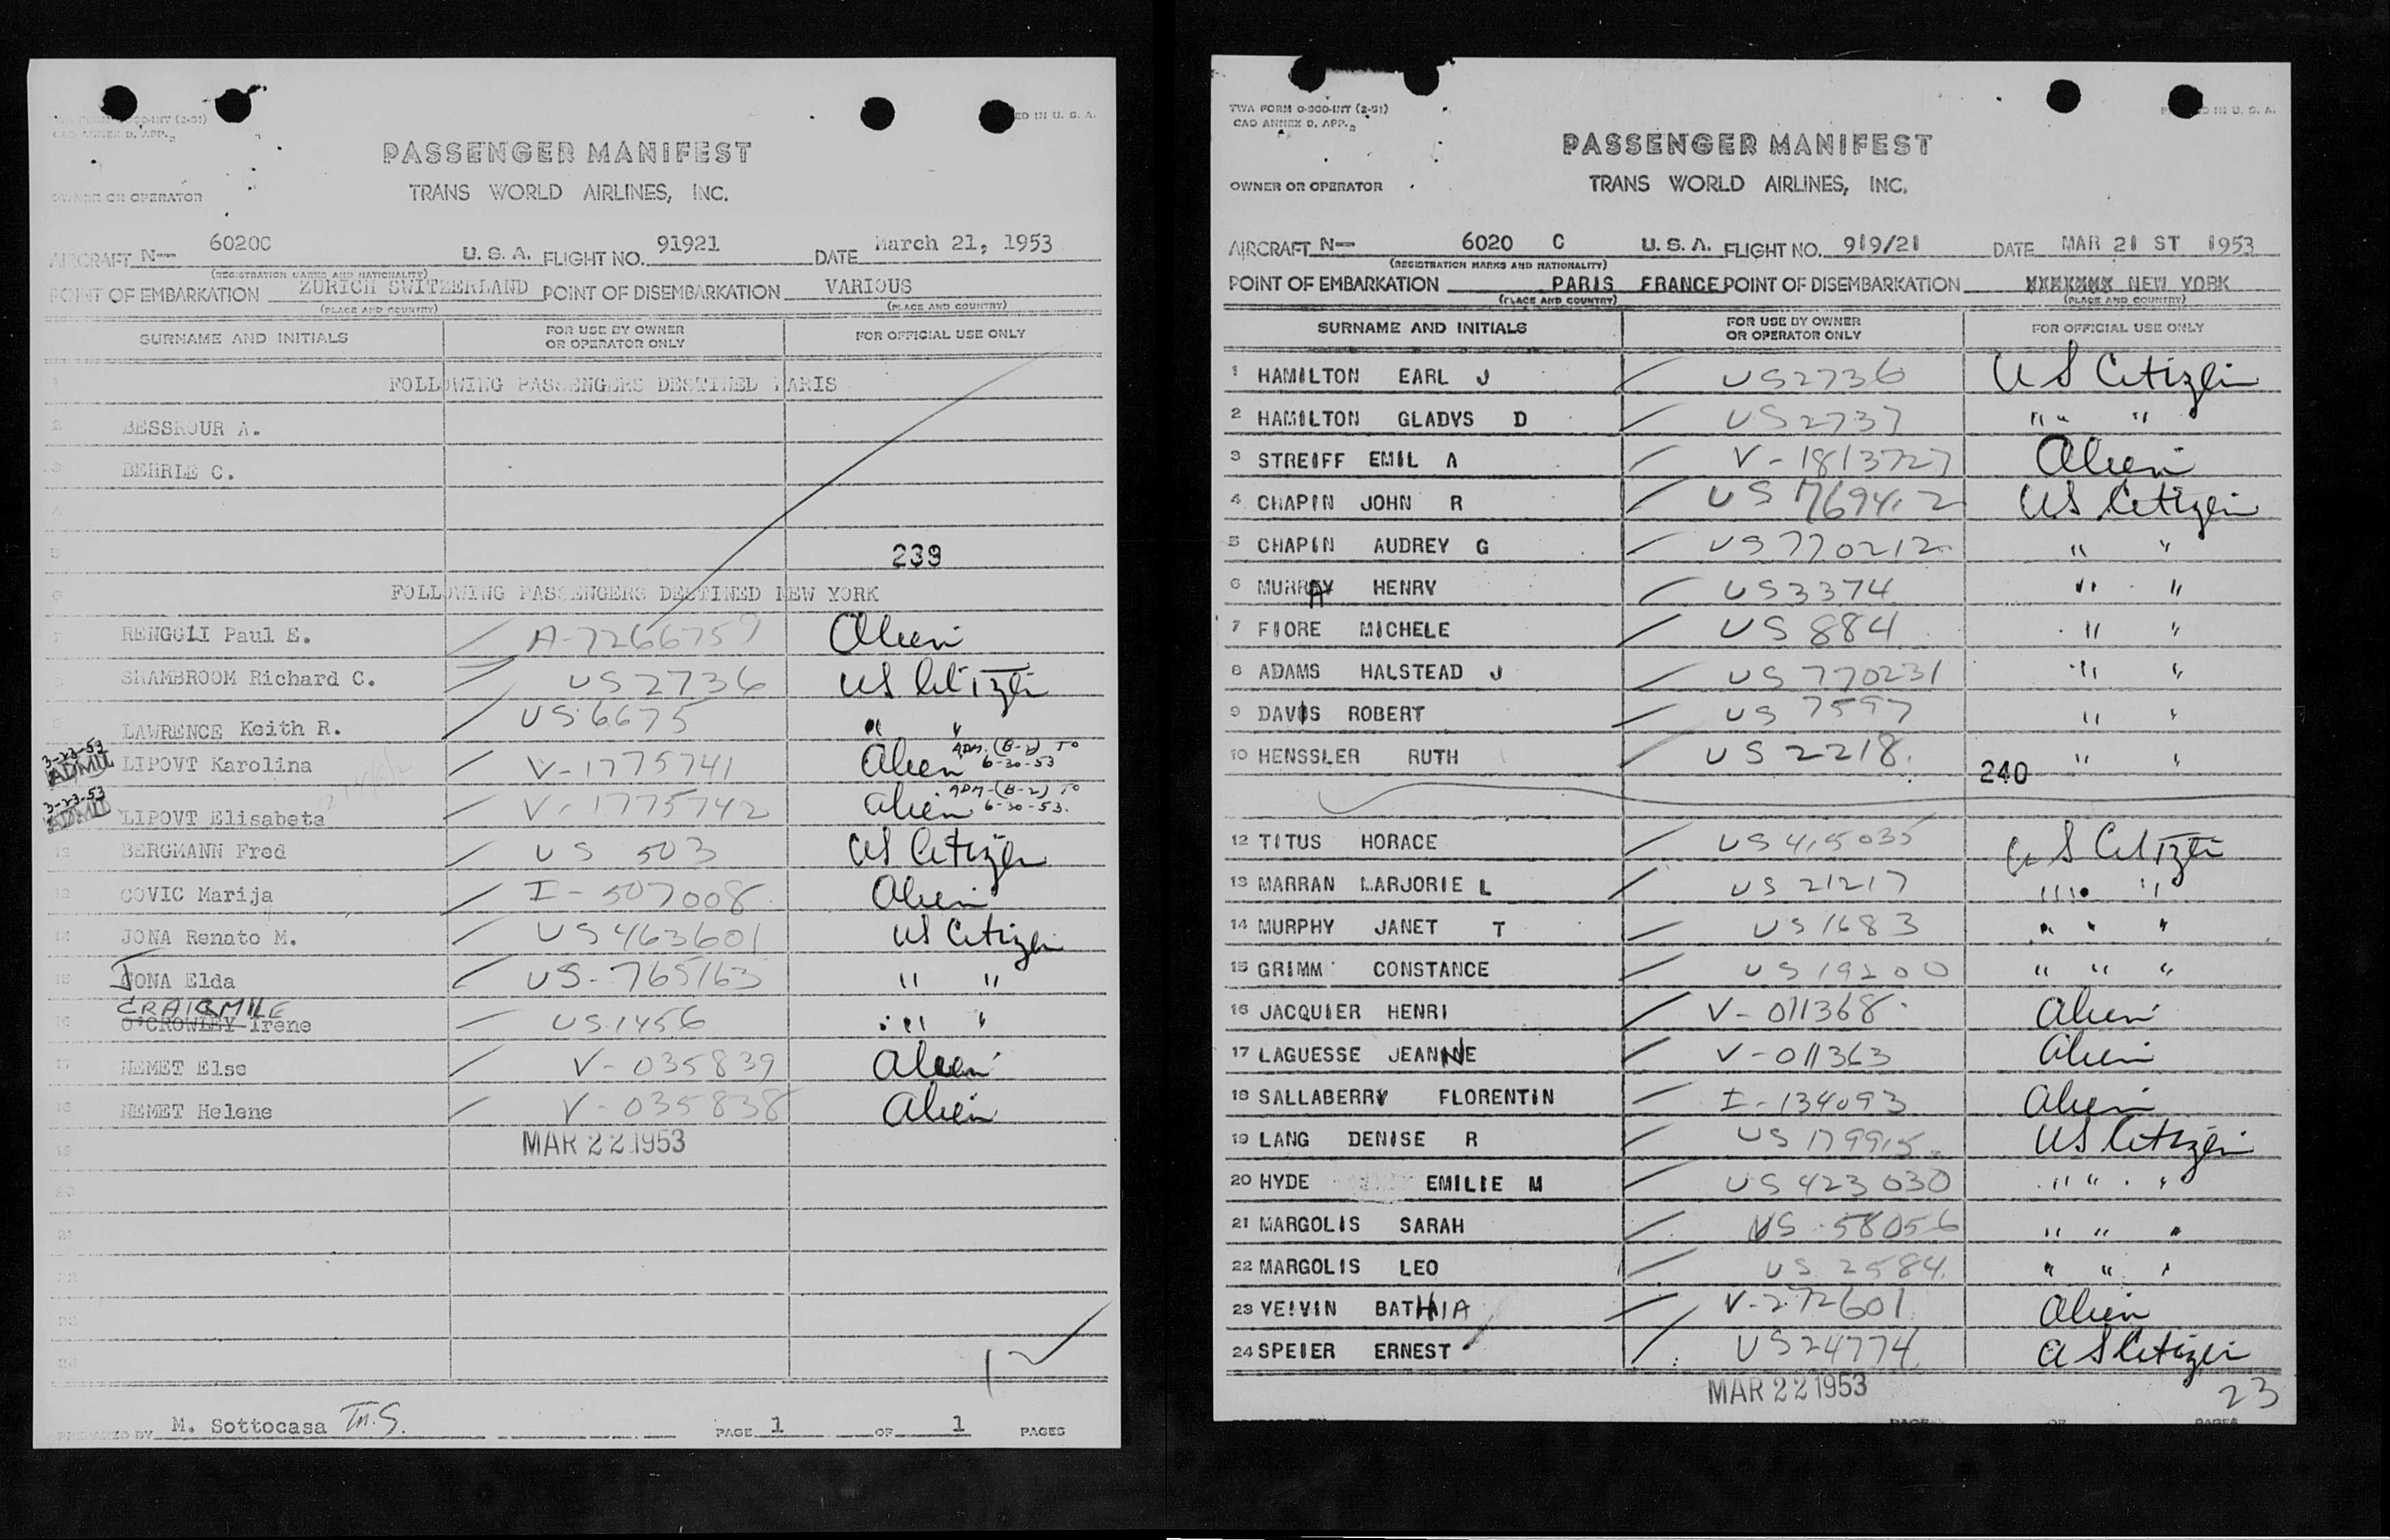 PASSENGER MANIFEST
TRANS WORLD AIRLINES, INC.
OWNER OR OPERATOR
AIRCRAFT N— 6020C U. S. A. FLIGHT NO. 91921 DATE March 21, 1953
(REGISTRATION MARKS AND NATIONALITY)
POINT OF EMBARKATION ZURICH SWITZERLAND POINT OF DISEMBARKATION VARIOUS
(PLACE AND COUNTRY) (PLACE AND COUNTRY)
SURNAME AND INITIALS FOR USE BY OWNER OR OPERATOR ONLY FOR OFFICIAL USE ONLY
1 FOLLOWING PASSENGERS DESTINED PARIS
2 BESSROUR A.
3 BEHRLE C.
4
5 239
6 FOLLOWING PASSENGERS DESTINED NEW YORK
7 RENGGLI Paul E. A-7266759 Alien
8 SHAMBROOM Richard C. US2736 US Citizen
9 LAWRENCE Keith R. US 6675 " "
3-23-53 ADMIT LIPOVT Karolina V-1775741 Alien ADM. (B-2) TO 6-30-53
3-23-53 ADMIT LIPOVT Elisabeta V-1775742 Alien ADM-(B-2) TO 6-30-53.
12 BERGMANN Fred US 503 US Citizen
13 COVIC Marija I-507008 Alien
14 JONA Renato M. US463601 US Citizen
15 JONA Elda US-765163 " "
CRAIGMILE
16 O'CROWLEY Irene US1456 " "
17 NEMET Else V-035839 Alien
18 NEMET Helene V-035838 Alien
19 MAR 22 1953
20
21
22
23
24
12
PREPARED BY M. Sottocasa M.S. PAGE 1 OF 1 PAGES
TWA FORM O-300-INT (2-51)
CAO ANNEX D, APP. 2
PASSENGER MANIFEST
TRANS WORLD AIRLINES, INC.
OWNER OR OPERATOR
AIRCRAFT N— 6020 C U. S. A. FLIGHT NO. 919/21 DATE MAR 21 ST 1953
(REGISTRATION MARKS AND NATIONALITY)
POINT OF EMBARKATION PARIS FRANCE POINT OF DISEMBARKATION NEW YORK
(PLACE AND COUNTRY) (PLACE AND COUNTRY)
SURNAME AND INITIALS FOR USE BY OWNER OR OPERATOR ONLY FOR OFFICIAL USE ONLY
1 HAMILTON EARL J US2736 US Citizen
2 HAMILTON GLADYS D US2737 " " "
3 STREIFF EMIL A V-1813727 Alien
4 CHAPIN JOHN R US 769412 US Citizen
5 CHAPIN AUDREY G US770212 " "
6 MURRAY HENRY US3374 " "
7 FIORE MICHELE US 884 " "
8 ADAMS HALSTEAD J US 770231 " "
9 DAVIS ROBERT US 7597 " "
10 HENSSLER RUTH US 2218. " "
240
12 TITUS HORACE US415035 US Citizen
13 MARRAN MARJORIE L US 21217 " " "
14 MURPHY JANET T US 1683 " " "
15 GRIMM CONSTANCE US 19200 " " "
16 JACQUIER HENRI V-011368 Alien
17 LAGUESSE JEANNE V-011363 Alien
18 SALLABERRY FLORENTIN I-134093 Alien
19 LANG DENISE R US 179915 US Citizen
20 HYDE EMILIE M US 423030 " " "
21 MARGOLIS SARAH US 58056 " " "
22 MARGOLIS LEO US 2584 " " "
23 VEIVIN BATHIA V-272601 Alien
24 SPEIER ERNEST US24774 US Citizen
MAR 22 1953 23